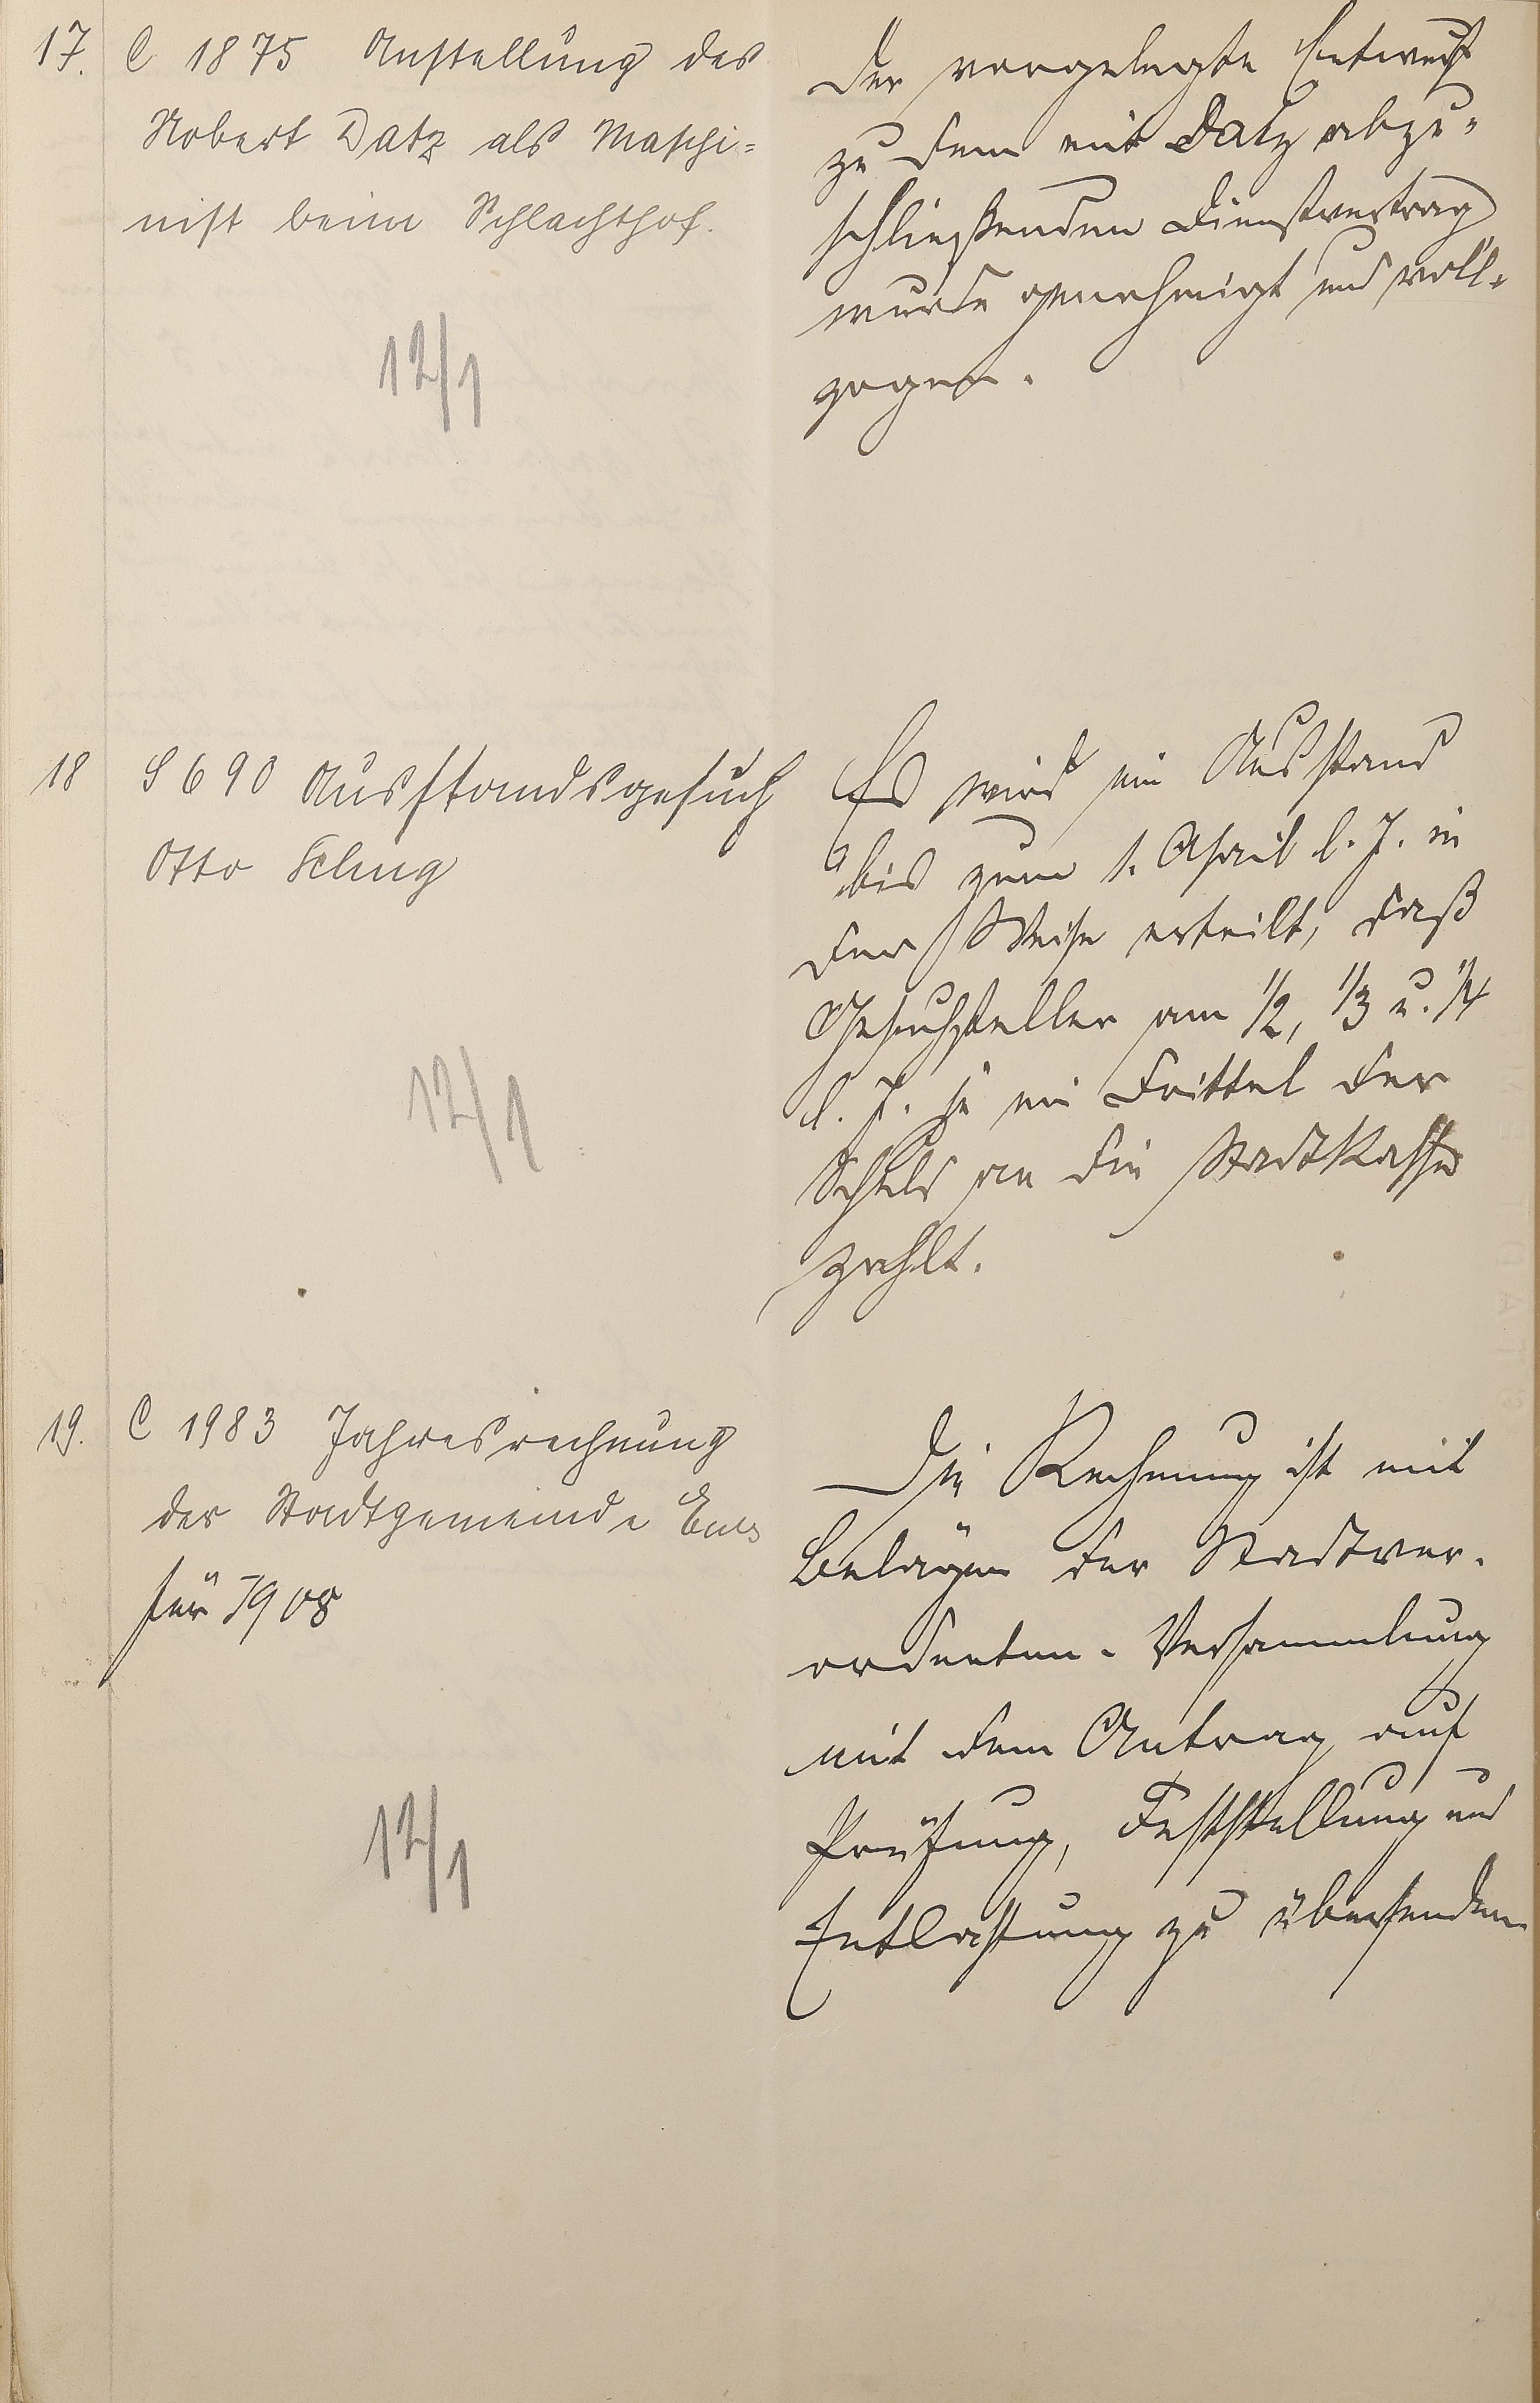 17. C 1875 Anstellung des
Robert Datz als Maschi=
nist beim Schlachthof.
12/1
Der vorgelegte Entwurf
zu dem mit Datz abzu-
schließenden Dienstvertrag
wurde genehmigt und voll-
zogen.
18 S 690 Ausstandsgesuch
Otto
12/1
Es wird ein Ausstand
bis zum 1. April l. J. in
der Weise erteilt, daß
Gesuchsteller am 1/2, 1/3 u. 1/4
l. J. je ein Drittel der
Schuld an die Stadtkasse
zahlt.
19. C 1983 Jahresrechnung
der Stadtgemeinde Ems
für 1908
12/1
Die Rechnung ist mit
Belägen der Stadtver-
ordneten-Versammlung
mit dem Antrag auf
Prüfung, Feststellung und
Entlastung zu übersenden